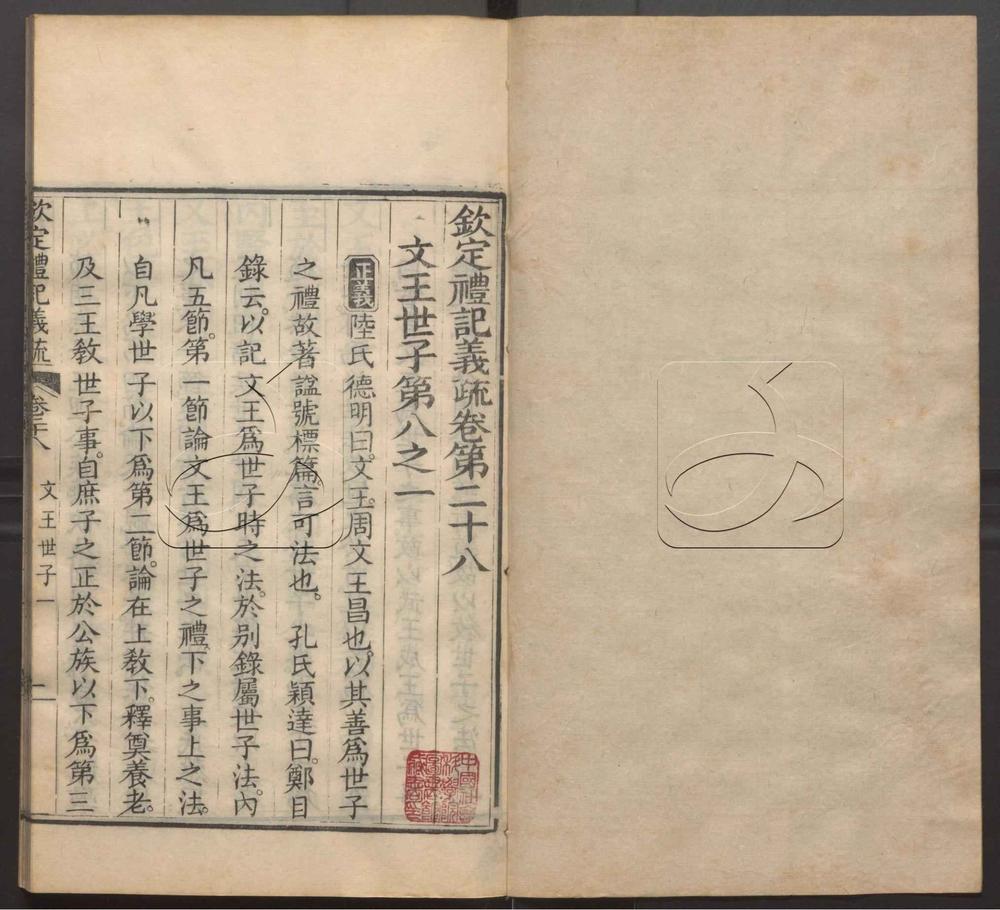 欽定禮記義疏卷第二十八
文王世子第八之一
正義 陸氏德明曰。文王。周文王昌也。以其善為世子
之禮故著諡號標篇。言可法也。 孔氏穎達曰。鄭目
錄云。以記文王為世子時之法。於別錄屬世子法。內
凡五節。第一節論文王為世子之禮。下之事上之法。
自凡學世子以下為第二節。論在上敎下。釋奠養老。
及三王敎世子事。自庶子之正於公族以下為第三
欽定禮記義疏 卷二十八 文王世子一 一